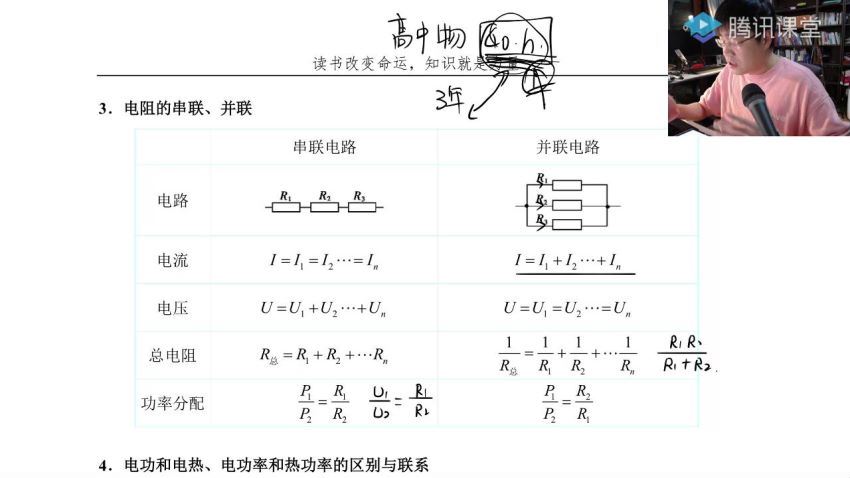 腾讯课堂
高中物
60.h.
读书改变命运，知识就是
3年
3．电阻的串联、并联
串联电路 并联电路
电路 R₁ R₂ R₃ R₁ R₂ R₃
电流 I = I₁ = I₂ ⋯ = Iₙ I = I₁ + I₂ ⋯ + Iₙ
电压 U = U₁ + U₂ ⋯ + Uₙ U = U₁ = U₂ ⋯ = Uₙ
总电阻 R总 = R₁ + R₂ + ⋯ Rₙ 1/R总 = 1/R₁ + 1/R₂ + ⋯ 1/Rₙ R₁R₂/R₁+R₂
功率分配 P₁/P₂ = R₁/R₂ U₁/U₂ = R₁/R₂ P₁/P₂ = R₂/R₁
4．电功和电热、电功率和热功率的区别与联系